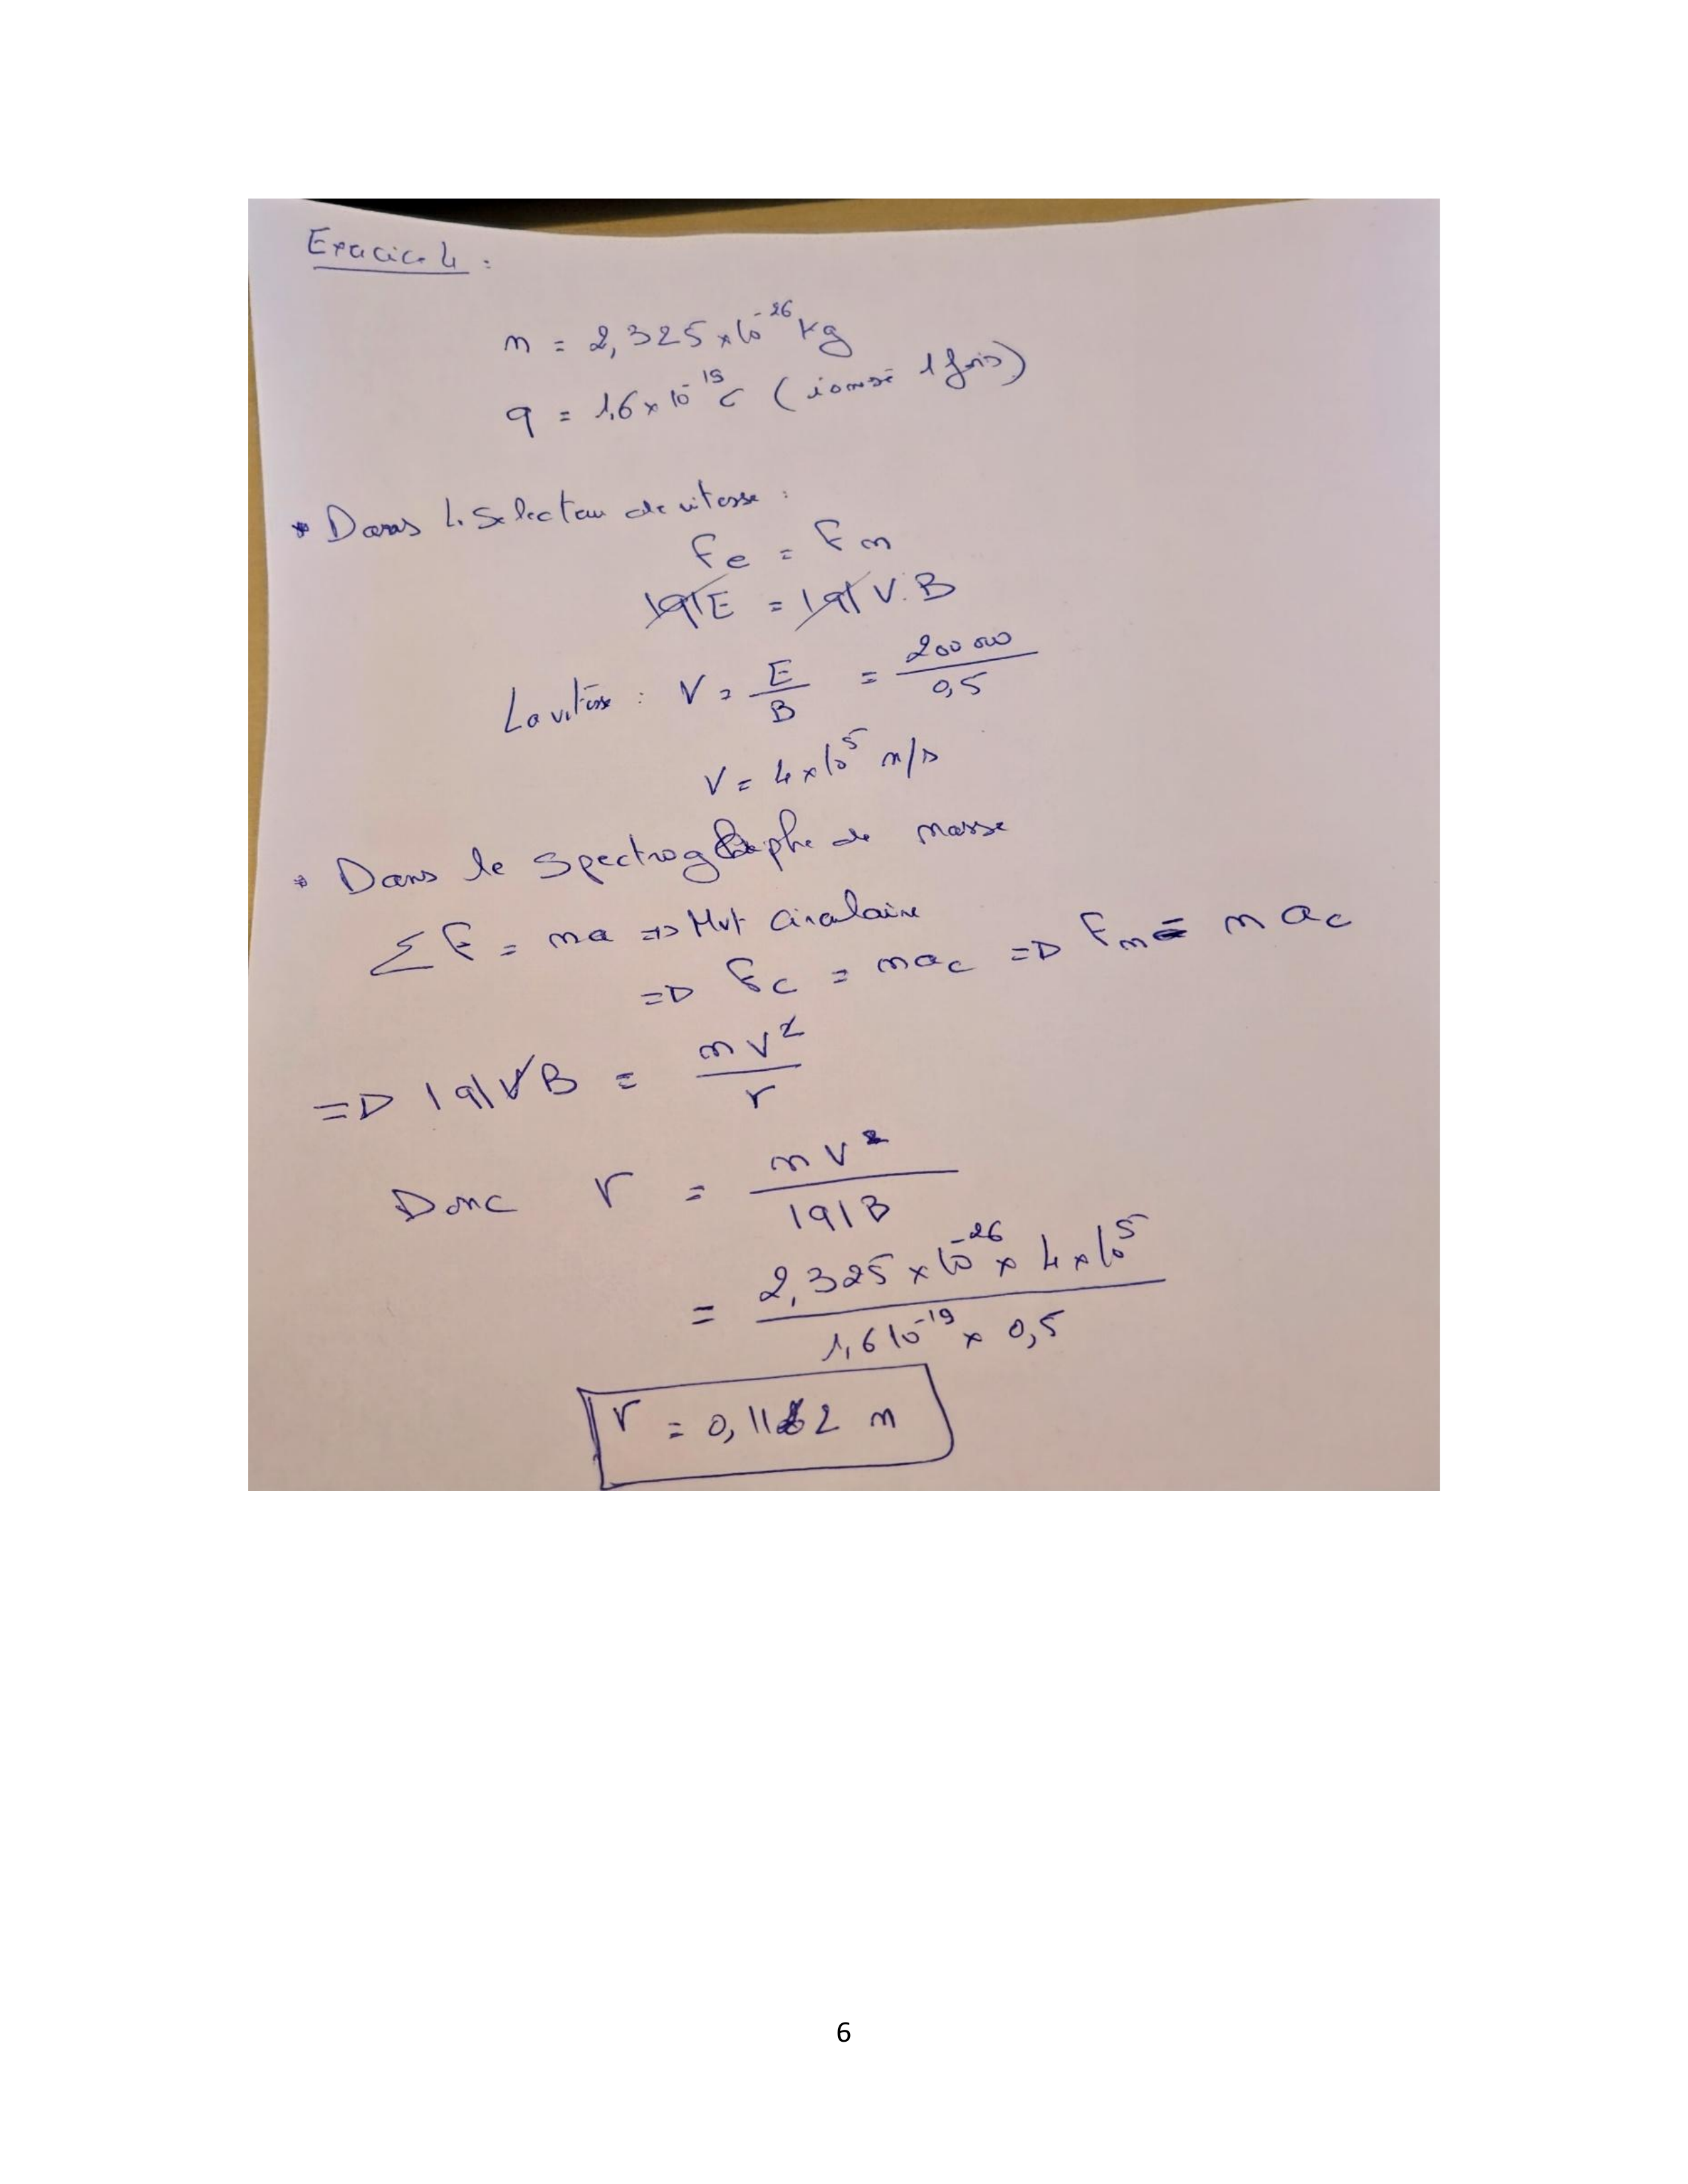 Exercice 4 :
m = 2,325 × 10^-26 kg
q = 1,6 × 10^-19 C (ionisé 1 fois)
* Dans le Selecteur de vitesse :
Fe = Fm
|q|E = |q| V. B
La vitesse : V = E/B = 200 000/0,5
V = 4 × 10^5 m/s
* Dans le Spectrographe de masse
ΣF = ma => Mvt Circulaire
=> Fc = mac => Fm = mac
=> |q|VB = mV^2/r
Donc r = mV/|q|B
= 2,325 × 10^-26 × 4 × 10^5/1,6 10^-19 × 0,5
r = 0,1162 m
6